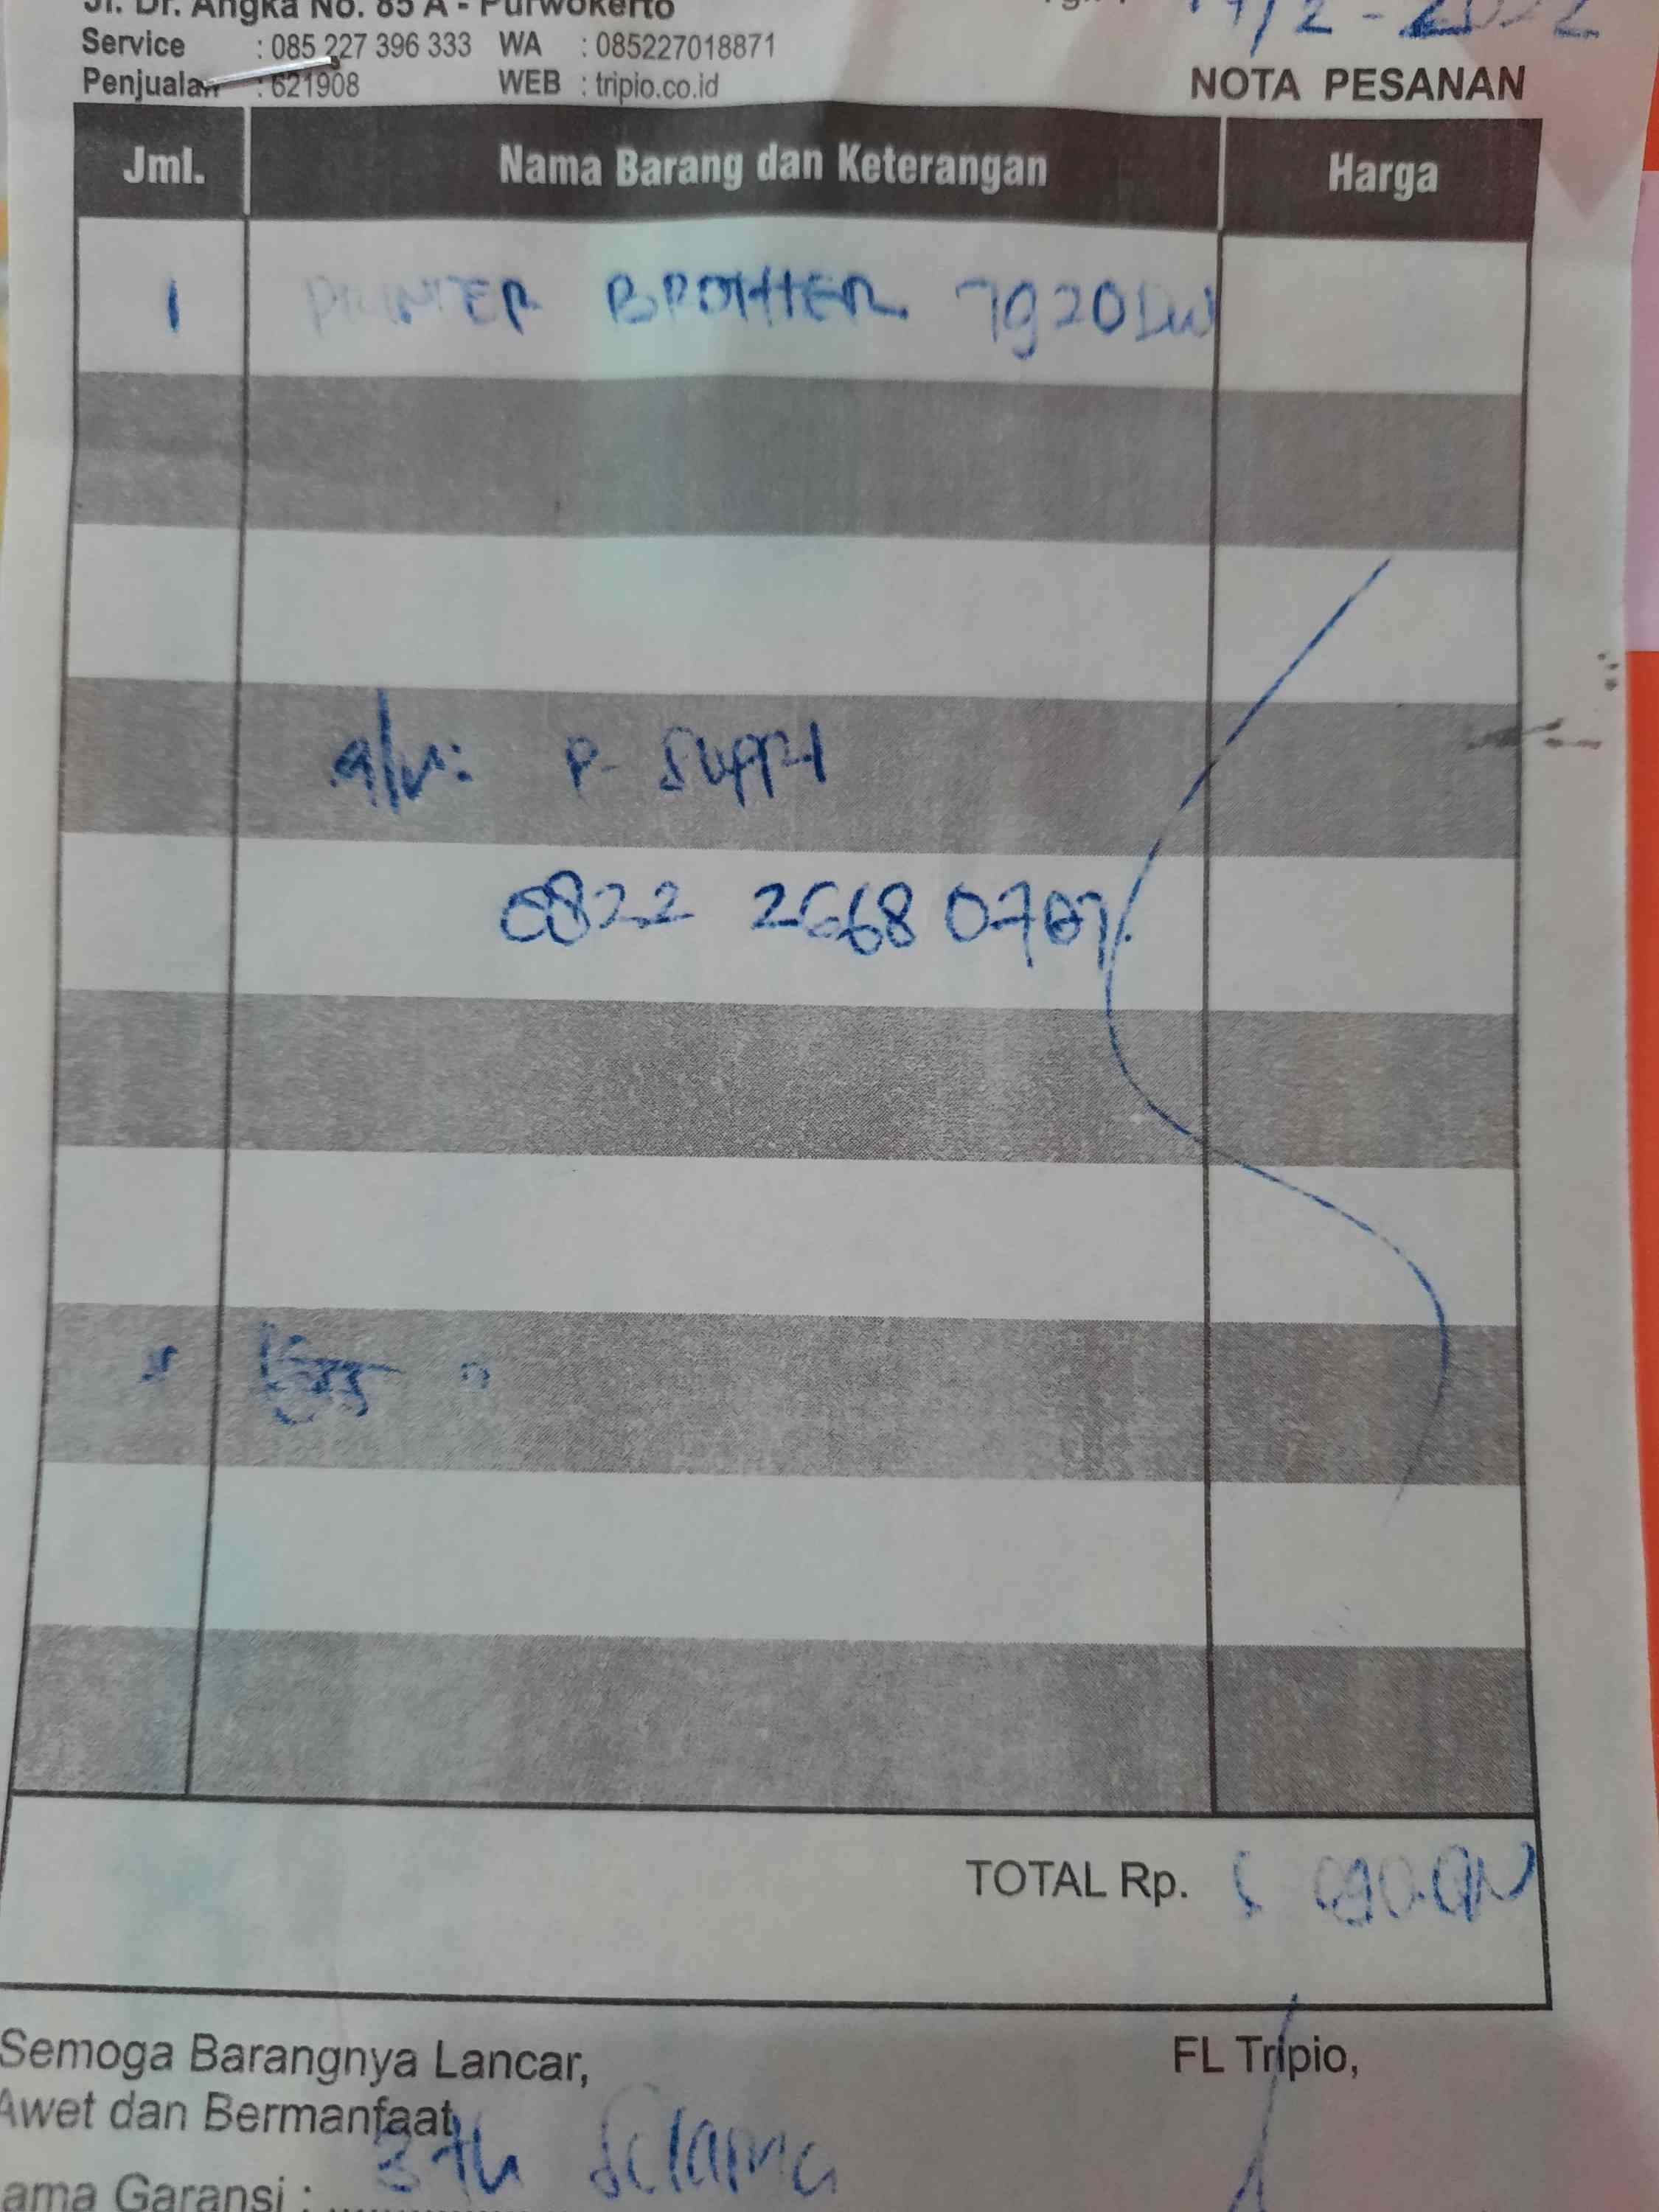 Jl. Dr. Angka No. 85 A - Purwokerto
Service : 085 227 396 333 WA : 085227018871
Penjualan : 621908 WEB : tripio.co.id
NOTA PESANAN
Jml. Nama Barang dan Keterangan Harga
1 PRINTER BROTHER 7920DW
a/n: P-
0822 2668 0707
TOTAL Rp.
Semoga Barangnya Lancar,
FL Tripio,
Awet dan Bermanfaat
ama Garansi : 3 th Selama